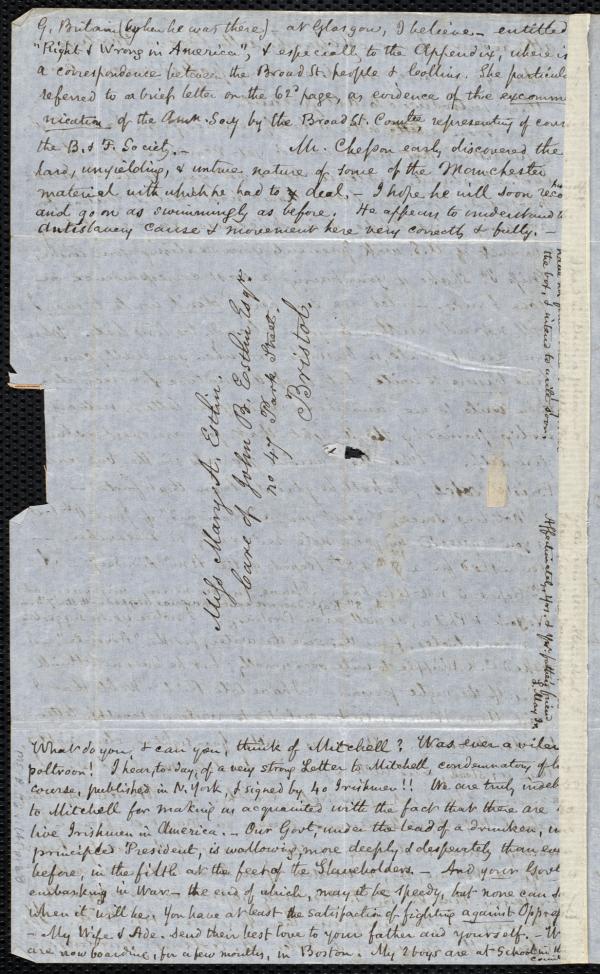 G. Britain (when he was there) - at Glasgow, I believe - entitled
"Right & Wrong in America", & especially to the Appendix, where is
a correspondence between the Broad St. people & Collins. She particul
referred to a brief letter on the 62d page, as evidence of the excomm
nication of the Am. Socy by the Broad St. Comtee, representing of cour
the B. & F. Society. - M. Chesson early discovered the
hard, unyielding, & untrue nature of some of the Manchester
material with which he had to deal. - I hope he will soon reco
and go on as swimmingly as before. He appears to understand
antislavery cause & movement here very correctly & fully. -
the box, & intend to write soon.
Miss Mary A. Estlin.
Care of John B. Estlin Esqr.
no 47 Park Street.
Bristol.
Affectionately yr. & yr father's friend
S. May Jr.
What do you, & can you, think of Mitchell? Was ever a viler
poltroon! I hear, to-day, of a very strong Letter to Mitchell, condemnatory of
course, published in N. York, & signed by 40 Irishmen!! We are truly indeb
to Mitchell for making us acquainted with the fact that there are
live Irishmen in America. - Our Govt, under the lead of a drunken, un
principled President, is wallowing more deeply & desperately than ev
before, in the filth at the feet of the Slaveholders. - And your Govt
embarking in War - the end of which, may it be speedy, but none can s
when it will be. You have at least the satisfaction of fighting against Oppre
- My Wife & Ade. send their best love to your father and yourself. - W
are now boarding, for a few months, in Boston. My 2 boys are at School in